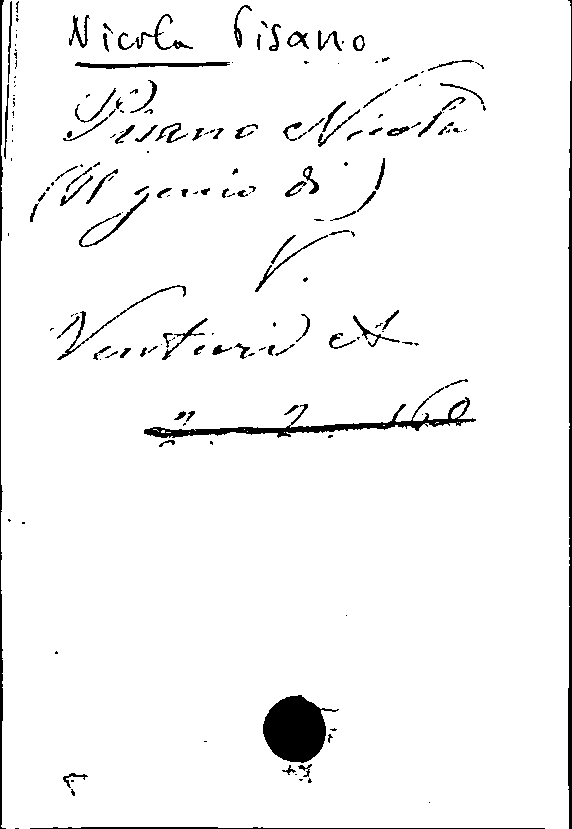 Nicola Pisano
Pisano Nicola
(Il genio di)
V.
Venturi A
2. 2. 160